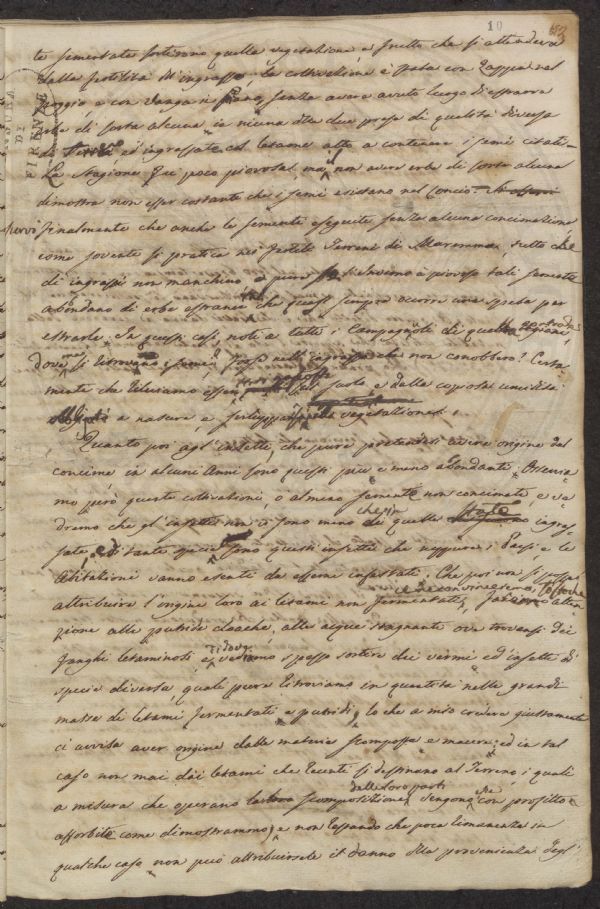 10
te sementate sortirono quella vegetazione e frutto che si attendeva
dalla fertilità dell'ingrasso. la coltivazione è stata con Zappa nel
poggio e con Vanga in piano, senza avere avuto luogo d'estrarre
erbe di sorta alcuna in niuna delle due prese di qualità diversa
di ed ingrassate col letame atto a contenere i semi citati
La Stagione fu poco piovosa, ma non avere erbe di sorta alcuna
dimostra non esser costante che i semi esistano nel concio.
Finalmente che anche le semente eseguite senza alcuna concimazione
come sovente si pratica nei fertili Terreni di Maremma, tutto che
di ingrassi non manchino, e pure se l'Inverno è piovoso tali semente
abondano di erbe estranee che quasi sempre occorre una spesa per
estrarle. In questi casi noti a tutti i Campagnoli di quelle
dove si ritrovano i semi, forse nell'ingrasso che non conobbero? Certa
mente che rileviamo essere suolo e dalla copiosa umidità
a nature, e sviluppare vegetazione.
Quanto poi agl'insetti, che pure pretendesi avere origine dal
concime in alcuni Anni sono questi più e meno abondanti. Osservia
mo però queste coltivazioni, o almeno semente non concimate e ve
dremo che gl'insetti non ci sono meno che in quelle ingras
sate, ed in tante specie sono questi insetti che neppure i Paesi e le
Abitazioni vanno esenti da esserne infestate. Che poi non si possa
attribuire l'origine loro ai letami non fermentati, atten
zione alle putride cloache, alle acque stagnanti ove trovansi dei
fanghi letaminosi e vediamo spesso sortire dei vermi ed insetti di
specie diversa quali pure ritroviamo in quantità nelle grandi
masse di letami fermentati e putridi, lo che a mio credere giustamente
ci avvisa aver origine dalle materie scomposte e macere; ed in tal
caso non mai dai letami che recenti si destinano al Terreno, i quali
dalle loro parti
a misura che operano la loro scomposizione vengono con profitto
assorbite come dimostrammo, e non restando che poca rimanenza in
qualche caso non può attribuirsele il danno della provenienza degl'